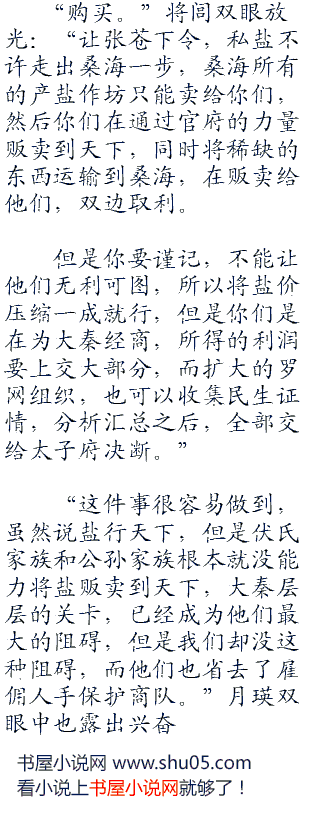 “购买。”将闾双眼放
光：“让张苍下令，私盐不
许走出桑海一步，桑海所有
的产盐作坊只能卖给你们，
然后你们在通过官府的力量
贩卖到天下，同时将稀缺的
东西运输到桑海，在贩卖给
他们，双边取利。
但是你要谨记，不能让
他们无利可图，所以将盐价
压缩一成就行，但是你们是
在为大秦经商，所得的利润
要上交大部分，而扩大的罗
网组织，也可以收集民生证
情，分析汇总之后，全部交
给太子府决断。”
“这件事很容易做到，
虽然说盐行天下，但是伏氏
家族和公孙家族根本就没能
力将盐贩卖到天下，大秦层
层的关卡，已经成为他们最
大的阻碍，但是我们却没这
种阻碍，而他们也省去了雇
佣人手保护商队。”月瑛双
眼中也露出兴奋
书屋小说网 www.shu05.com
看小说上书屋小说网就够了！